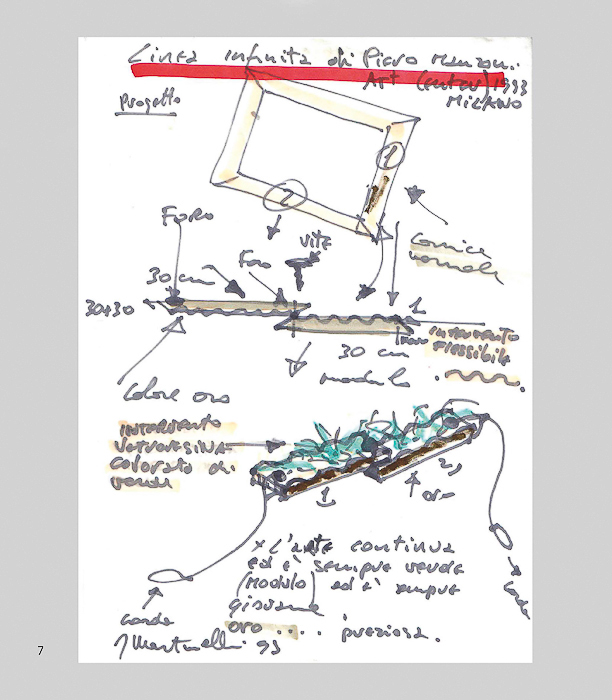 Linea infinita di Piero Manzoni.
Art (enter) 1993
MILANO
Progetto
1
2
FORO
vite
Foro
30 cm
Cornice
normale
30+30
1
INTERVENTO
NON FLESSIBILE
30 cm
modulo
Colore oro
INTERVENTO
VETRORESINA
COLORATO di
verde
1
2
oro
x L'arte continua
ed è sempre verde
(modulo) ed è sempre
giovane
oro .... preziosa.
corda
corda
Martinelli 93
7